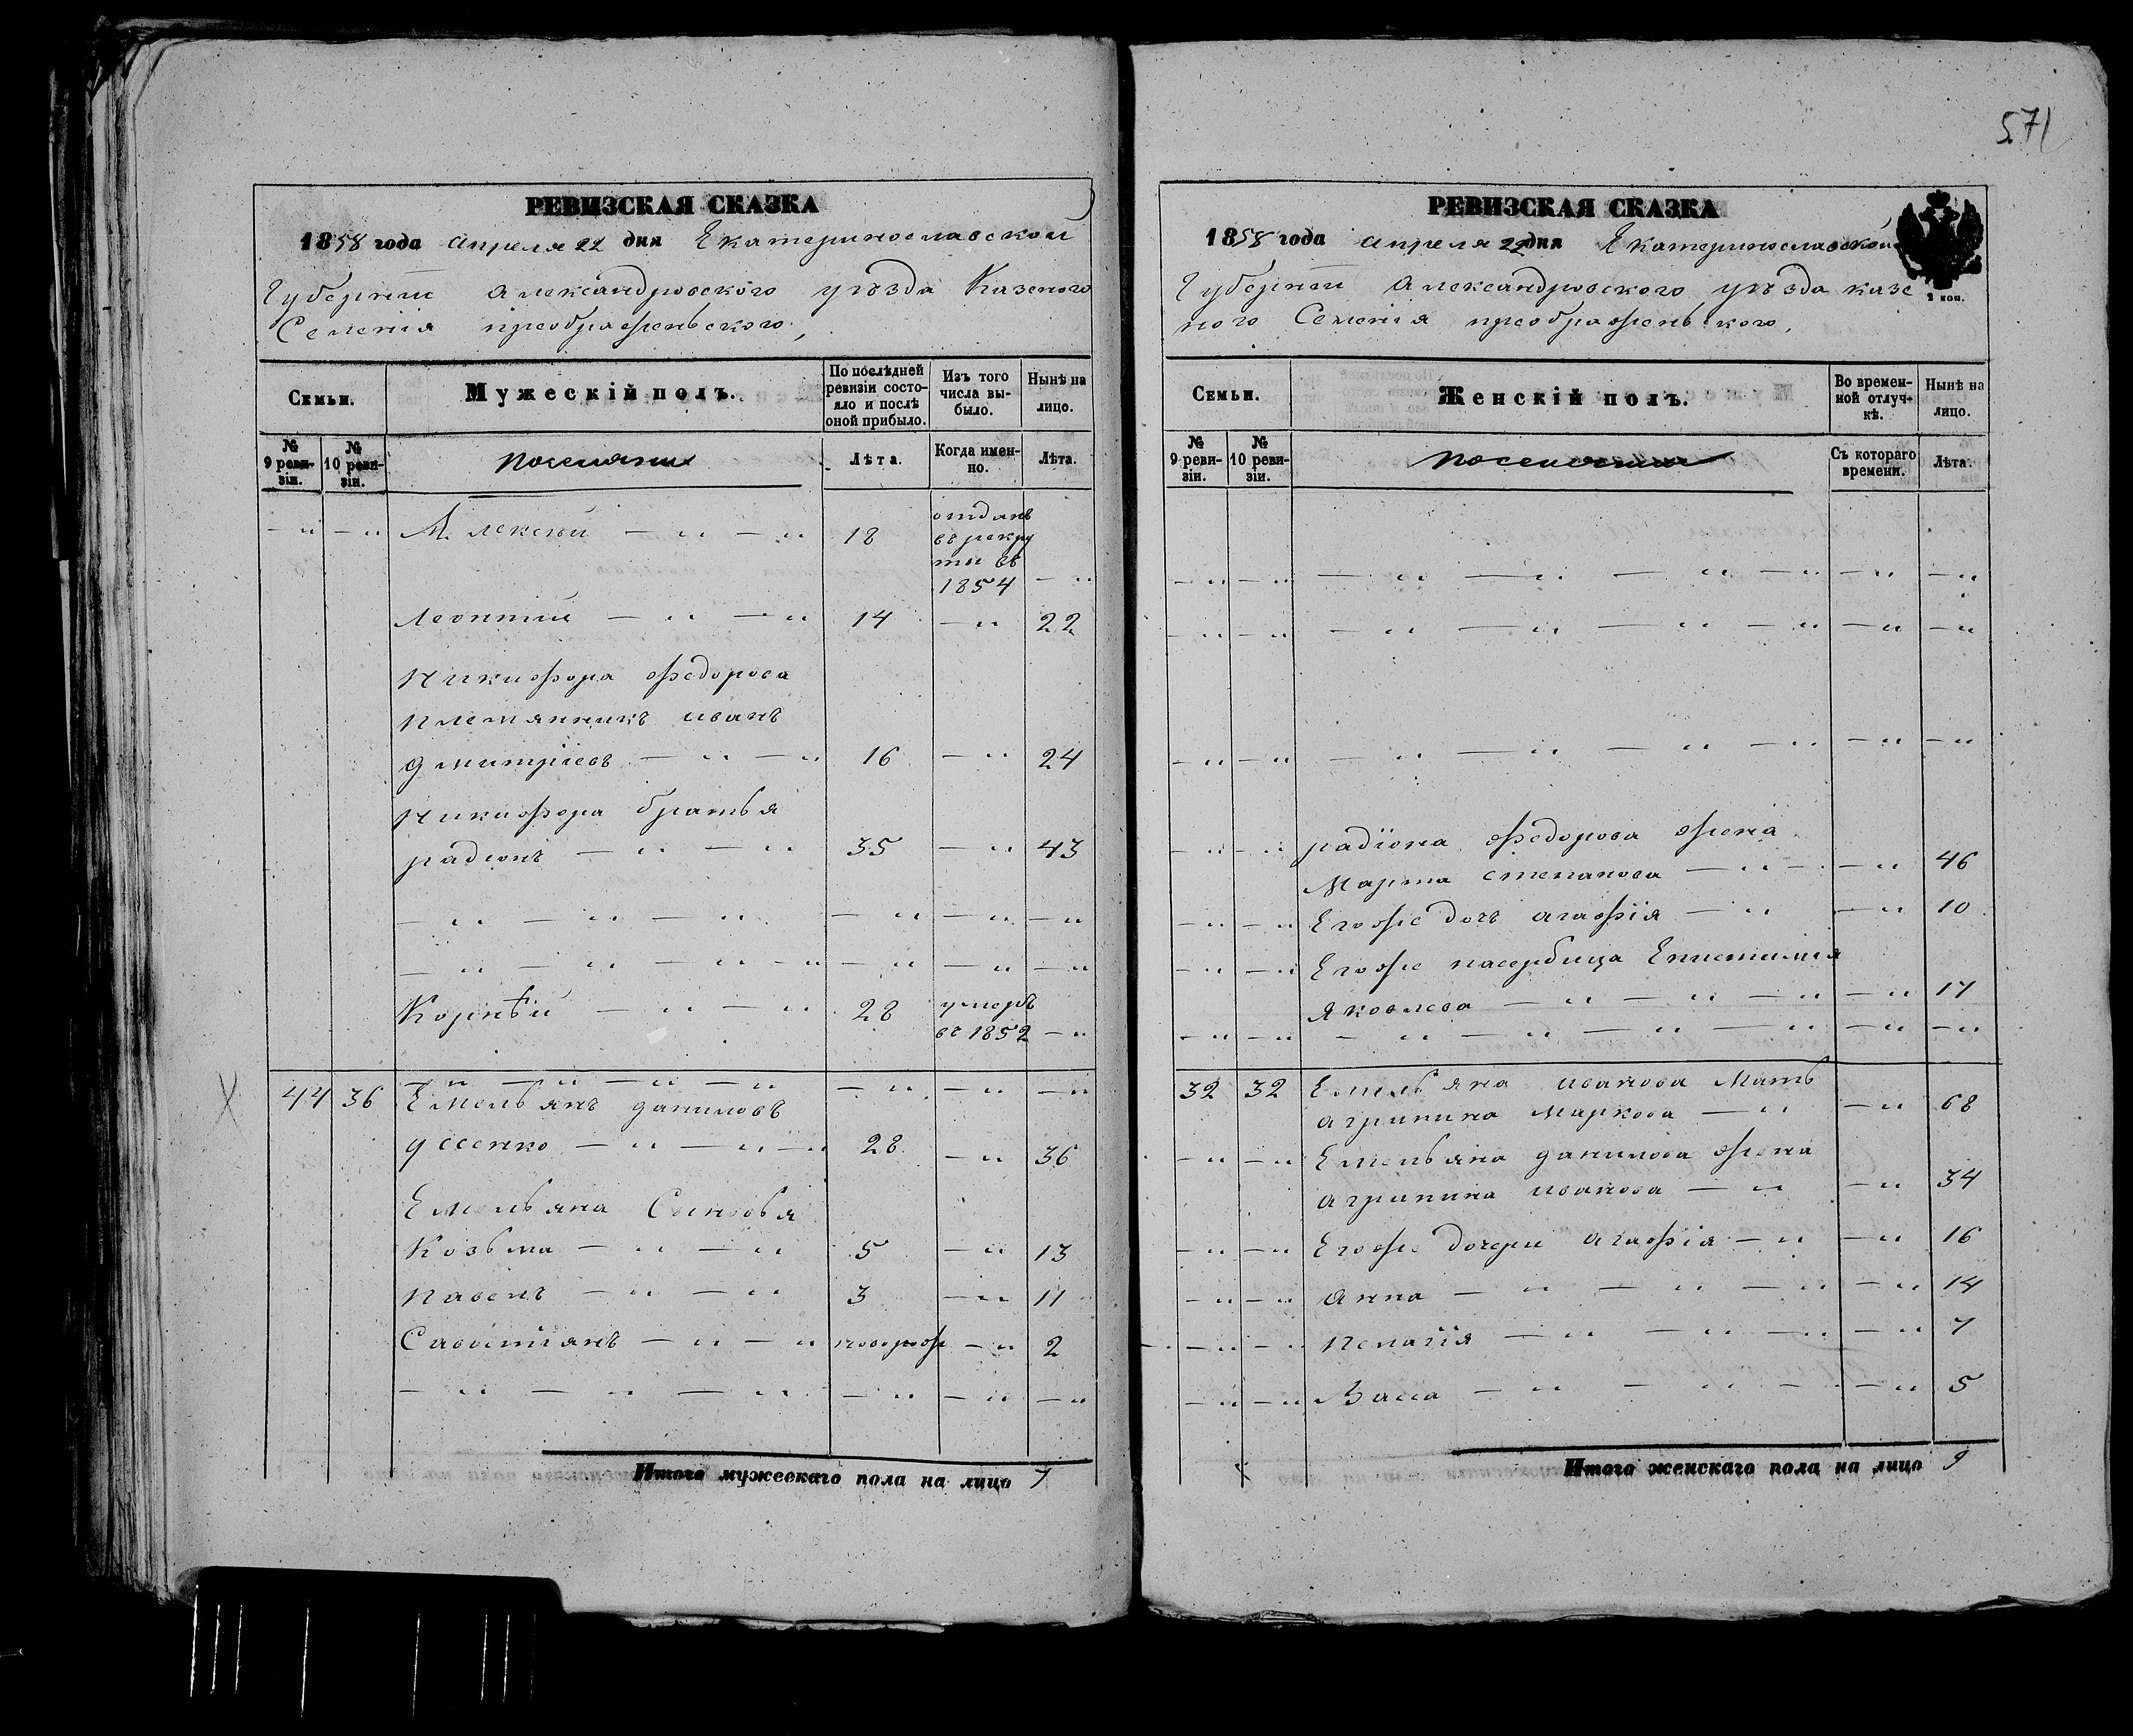 571
РЕВИЗСКАЯ СКАЗКА
1858 года апреля 22 дня Екатеринославской
Губернїи александровского уѣзда Казеного
Селенїя преображеньского,
Семьи. Мужескій полъ. По послѣдней ревизіи состояло и послѣ оной прибыло. Изъ того числа выбыло. Нынѣ на лицо.
№ 9 ревизіи. № 10 ревизіи. поселяни Лѣта. Когда именно. Лѣта.
— „ — „ Алексѣй — „ — „ 18 отданъ
въ рекру
ты въ
1854 — „
Леонтїй — „ — „ 14 — „ 22
Никифора федорова
племянникъ иванъ
дмитрїевъ — „ — „ 16 — „ 24
Никифора братья
радїонъ — „ — „ 35 — „ 43
— „ — „ — „ — „ — „ — „
— „ — „ — „ — „ — „ — „ — „
Корнѣй — „ — „ 28 умеръ
въ 1852 — „
— „ — „ — „ — „ — „ — „ — „
44 36 Емельянъ даниловъ
усенко — „ — „ — „ 28 — „ 36
Емельяна Сыновья
Козьма — „ — „ 5 — „ 13
павелъ — „ — „ 3 — „ 11
Савостїянъ — „ — „ новорож — „ 2
— „ — „ — „ — „ — „ — „
Итого мужескаго пола на лицо 7
РЕВИЗСКАЯ СКАЗКА
1858 года апреля 22 дня Екатеринославской
Губернїи александровского уѣзда казе
ного Селенїя преображеньского,
2 коп.
Семьи. Женскій полъ. Во временной отлучкѣ. Нынѣ на лицо.
№ 9 ревизіи. № 10 ревизіи. Съ котораго времени. Лѣта.
— „ — „ — „ — „ — „ — „ — „ — „
— „ — „ — „ — „ — „ — „ — „ — „
— „ — „ — „ — „ — „ — „ — „ — „
— „ — „ радїона федорова жена
Марта степанова — „ — — „ 46
— „ — „ Егоже дочъ агафїя — „ — „ 10
— „ — „ Егоже пасербица Епистимия
яковлева — „ — „ — „ — „ 17
— „ — „ — „ — „ — „ — „ — „ — „
32 32 Емельяна иванова Мать
агрипина Маркова — „ — „ 68
— „ — „ Емельяна данилова жена
агрипина иванова — „ — „ 34
— „ — „ Егоже дочери агафїя — „ — „ 16
— „ — „ анна — „ — „ — „ — „ 14
— „ — „ пелагїя — „ — „ — „ — „ 7
— „ — „ Васса — „ — „ — — „ 5
Итого женскаго пола на лицо 9